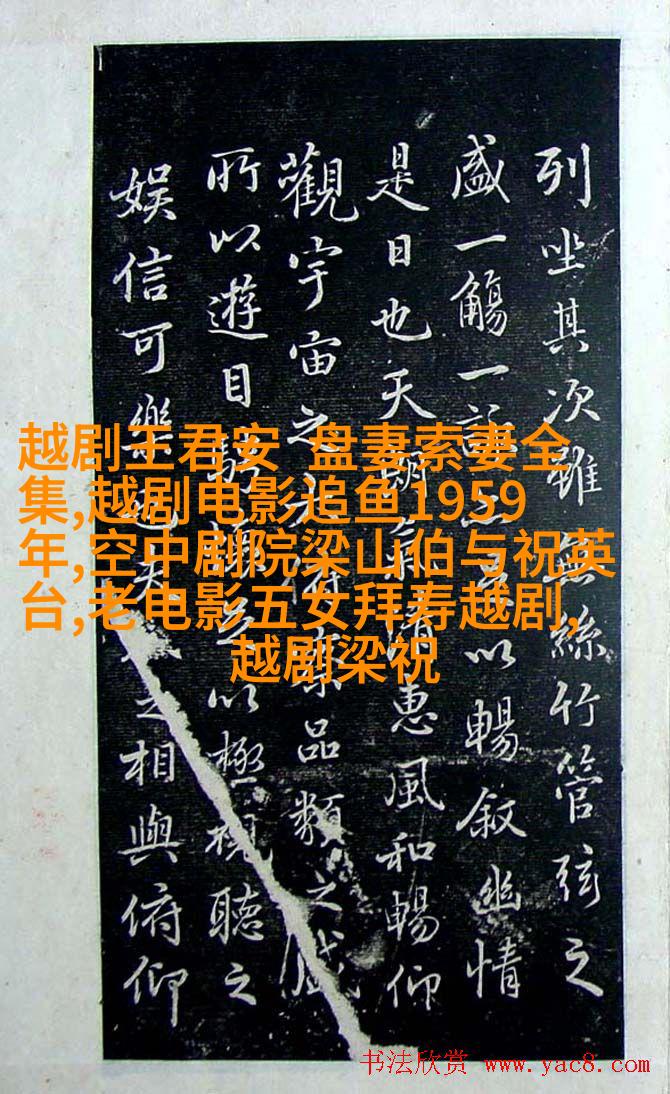 列坐其次雖無絲竹管弦之
盛一觴一以暢叙幽情
是日也天朗氣清惠風和暢仰
觀宇宙之察品類之盛
所以遊目以極視聽之
娱信可樂也之相與俯仰
越剧王君安 盘妻索妻全
集,越剧电影追鱼1959
年,空中剧院梁山伯与祝英
台,老电影五女拜寿越剧,
越剧梁祝
书法欣赏 www.yac8.com